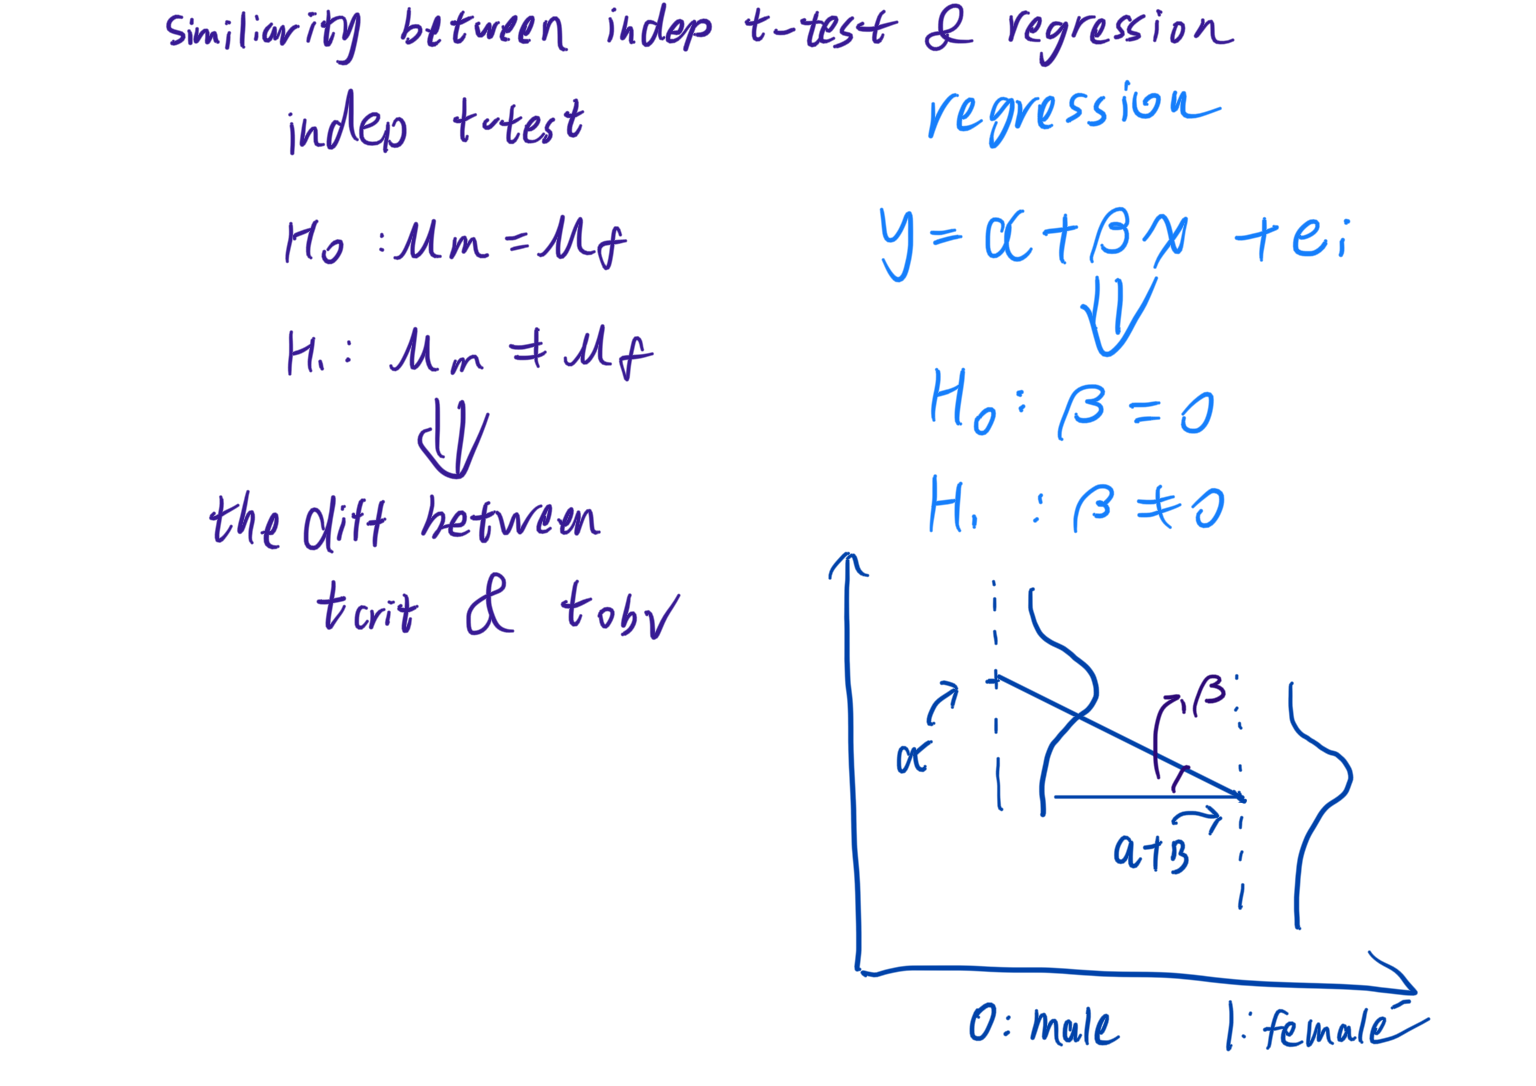 similiarity between indep t-test & regression
indep t-test
H0 : μm = μf
H1 : μm ≠ μf
⇓
the diff between
tcrit & tobv
regression
y = α + βx + ei
⇓
H0 : β = 0
H1 : β ≠ 0
α
β
a+β
0: male
1: female